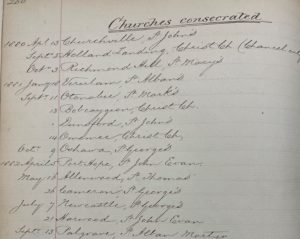 260
Churches consecrated
1880 Apl 13 Churchville, St John's
Sept 5 Holland Landing, Christ Ch. (Chancel only)
Octr 3 Richmond Hill St Mary's
1881 Jany 18 Verulam, St Alban's
Sept 11 Otonabee, St Mark's
13 Bobcaygeon, Christ Ch.
" Dunsford, St John's
14 Omemee, Christ Ch.
Octr 9 Oshawa, St George's
1882 April 5 Port Hope, St John Evan.
May 18 Allenwood, St Thomas
26 Cameron, St George's
July 7 Newcastle, St George's
21 Norwood, St John Evan
Sept 13 Palgrave, St Alban Martyr